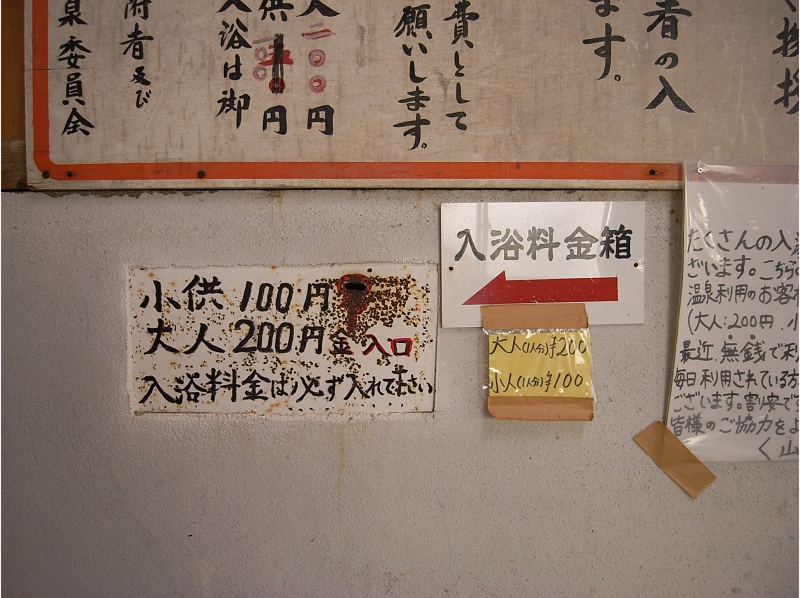 く挨拶
者の入
ます。
費として
願いします。
大人二〇〇円
供
円
入浴は御
附者及び
泉委員会
小供100円
大人200円金入口
入浴料金は必ず入れて下さい
入浴料金箱
大人(1人分)¥200
小人(1人分)¥100
たくさんの入浴
ざいます。こちらの
温泉利用のお客様
(大人:200円.小
最近、無銭で利
毎日利用されている方
ございます。割安で
皆様のご協力をよ
く山